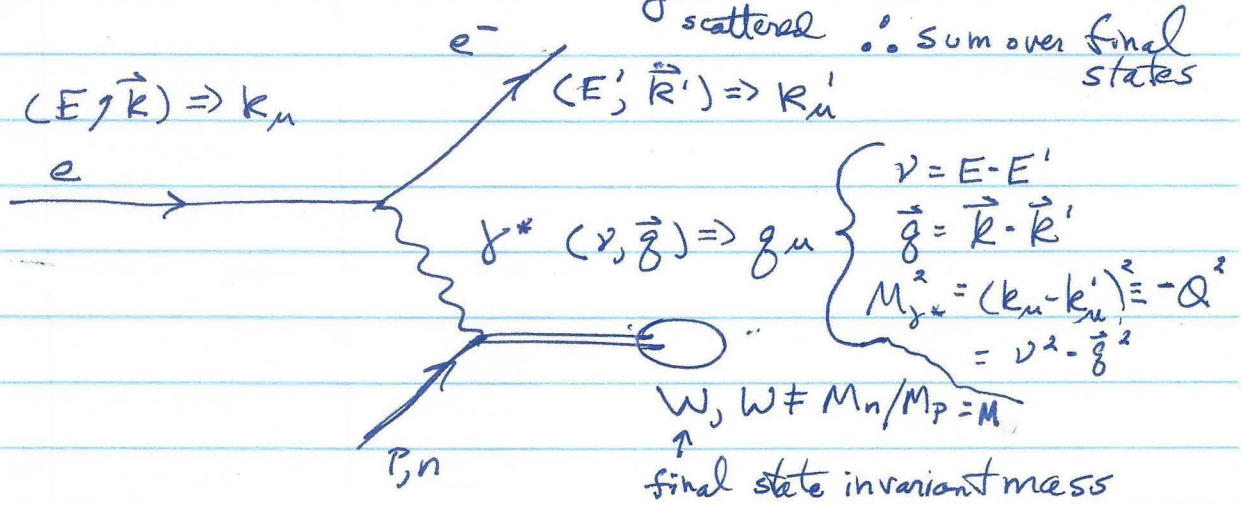 scattered ∴ sum over final
states
e⁻
(E, k⃗) => k_μ
(E', k⃗') => k'_μ
e
ν = E - E'
γ* (ν, q⃗) => q_μ
q⃗ = k⃗ - k⃗'
M²_γ* = (k_μ - k'_μ)² ≡ -Q²
= ν² - q⃗²
W, W ≠ M_n/M_p = M
↑
P,n
final state invariant mass